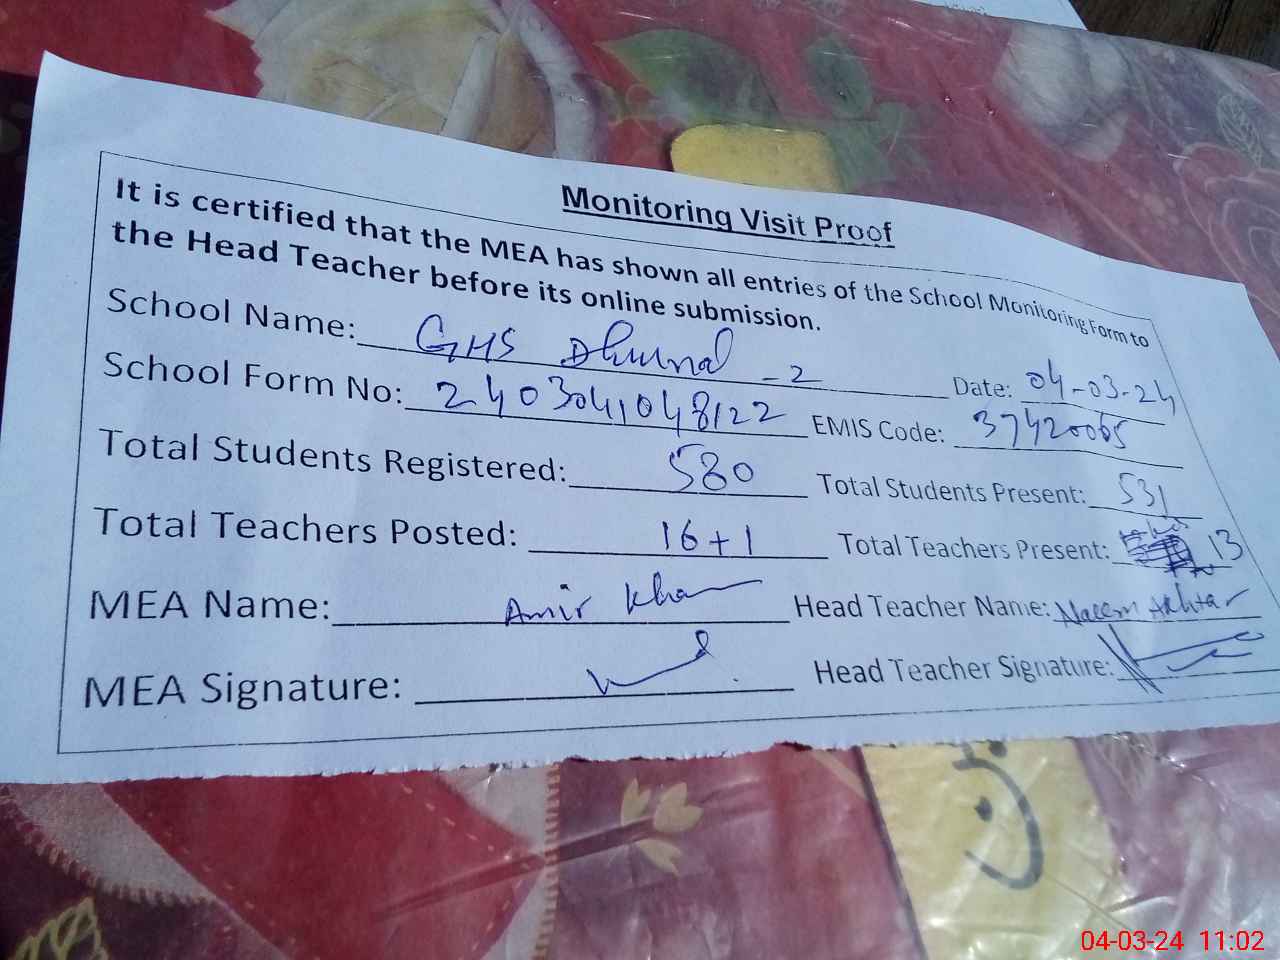 Monitoring Visit Proof
It is certified that the MEA has shown all entries of the School Monitoring Form to
the Head Teacher before its online submission.
School Name: GHS Dhurnal -2 Date: 04-03-24
School Form No: 2403041048122 EMIS Code: 37420065
Total Students Registered: 580 Total Students Present: 531
Total Teachers Posted: 16+1 Total Teachers Present: 13
MEA Name: Amir Khan Head Teacher Name: Naeem Akhtar
MEA Signature: Head Teacher Signature:
04-03-24 11:02